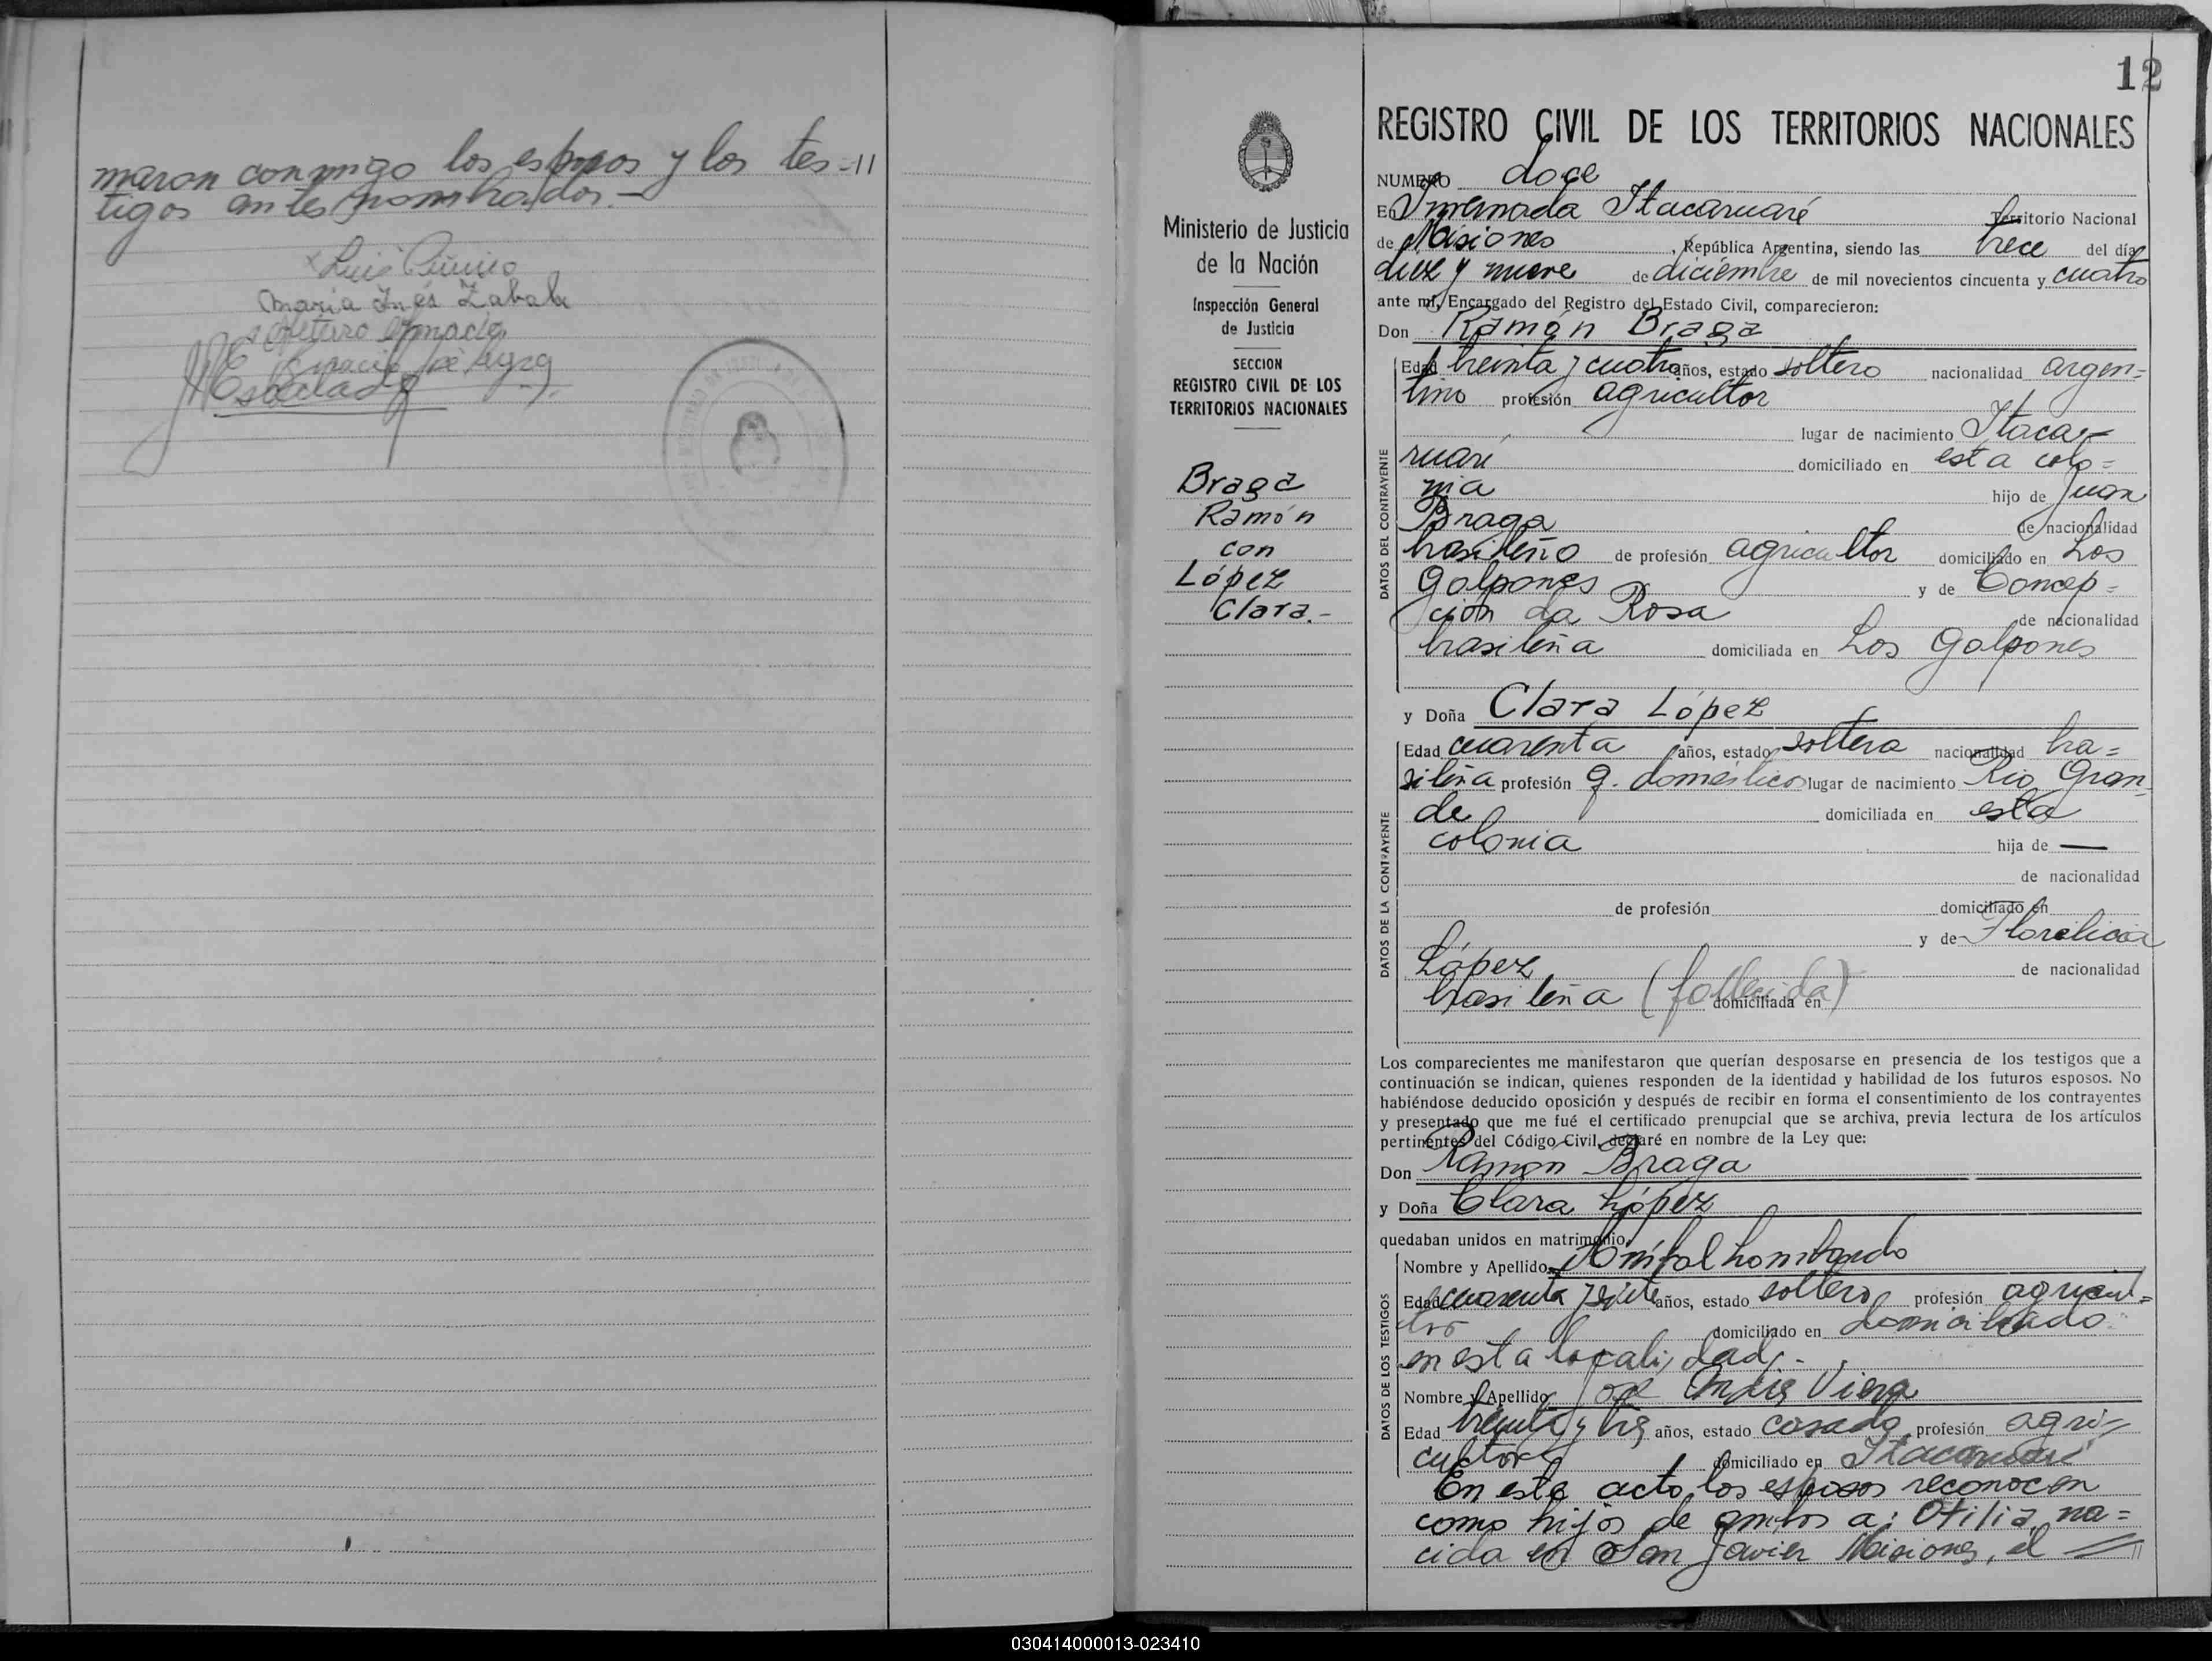 maron conmigo los esposos y los tes-//
tigos antes nombrados.—
Luis
María Inés Zabala
Ignacio
Escalada
12
Ministerio de Justicia
de la Nación
Inspección General
de Justicia
SECCION
REGISTRO CIVIL DE LOS
TERRITORIOS NACIONALES
Braga
Ramón
con
López
Clara.-
REGISTRO CIVIL DE LOS TERRITORIOS NACIONALES
NUMERO doce
En Invernada Itacaruaré Territorio Nacional
de Misiones, República Argentina, siendo las trece del día
diez y nueve de diciembre de mil novecientos cincuenta y cuatro
ante mí, Encargado del Registro del Estado Civil, comparecieron:
Don Ramón Braga
DATOS DEL CONTRAYENTE
Edad treinta y cuatro años, estado soltero nacionalidad argen=
tino profesión agricultor
lugar de nacimiento Itaca-
ruaré domiciliado en esta colo=
nia hijo de Juan
Braga de nacionalidad
brasileño de profesión agricultor domiciliado en Los
Galpones y de Concep=
ción da Rosa de nacionalidad
brasileña domiciliada en Los Galpones
y Doña Clara López
DATOS DE LA CONTRAYENTE
Edad cuarenta años, estado soltera nacionalidad bra=
sileña profesión q. domésticos lugar de nacimiento Rio Gran-
de domiciliada en esta
colonia hija de —
de nacionalidad
de profesión domiciliado en
y de Florelicia
López de nacionalidad
brasileña (fallecida) domiciliada en
Los comparecientes me manifestaron que querían desposarse en presencia de los testigos que a
continuación se indican, quienes responden de la identidad y habilidad de los futuros esposos. No
habiéndose deducido oposición y después de recibir en forma el consentimiento de los contrayentes
y presentado que me fué el certificado prenupcial que se archiva, previa lectura de los artículos
pertinentes del Código Civil, declaré en nombre de la Ley que:
Don Ramón Braga
y Doña Clara López
quedaban unidos en matrimonio.
DATOS DE LOS TESTIGOS
Nombre y Apellido Aníbal Lombardo
Edad cuarenta y siete años, estado soltero profesión agricul=
tor domiciliado en domiciliado
en esta localidad.-
Nombre y Apellido José Viera
Edad treinta y tres años, estado casado profesión agri=
cultor domiciliado en Itacaruaré
En este acto los esposos reconocen
como hijos de ambos a: Otilia, na=
cida en San Javier Misiones, el //
030414000013-023410